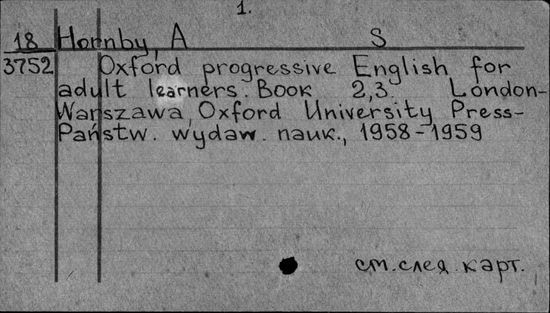 1.
18 Hornby, A S
3752 Oxford progressive English for
adult learners. Book 2,3. London-
Warszawa, Oxford University Press-
Państw. wydaw. nauk., 1958-1959
см. след. карт.